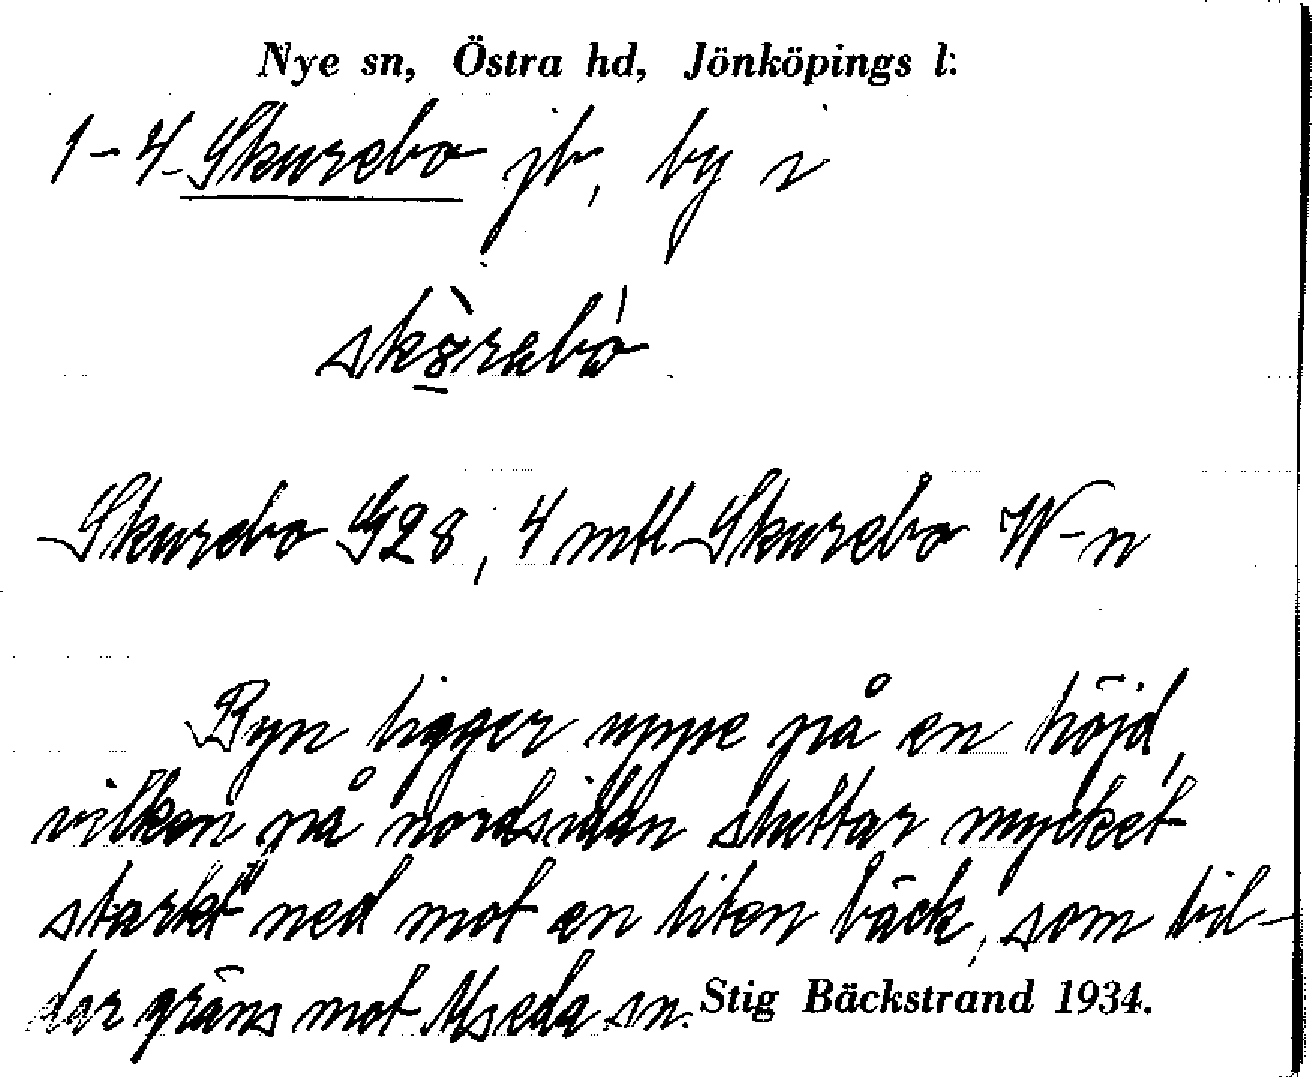 Nye sn, Östra hd, Jönköpings l:
1-4 Skurebo jb, by i
Skurebo G28, 4 mtl Skurebo W-n
Byn ligger uppe på en höjd,
vilken på nordsidan sluttar mycket
starkt ned mot en liten bäck, som bil-
dar gräns mot Äseda sn.
Stig Bäckstrand 1934.